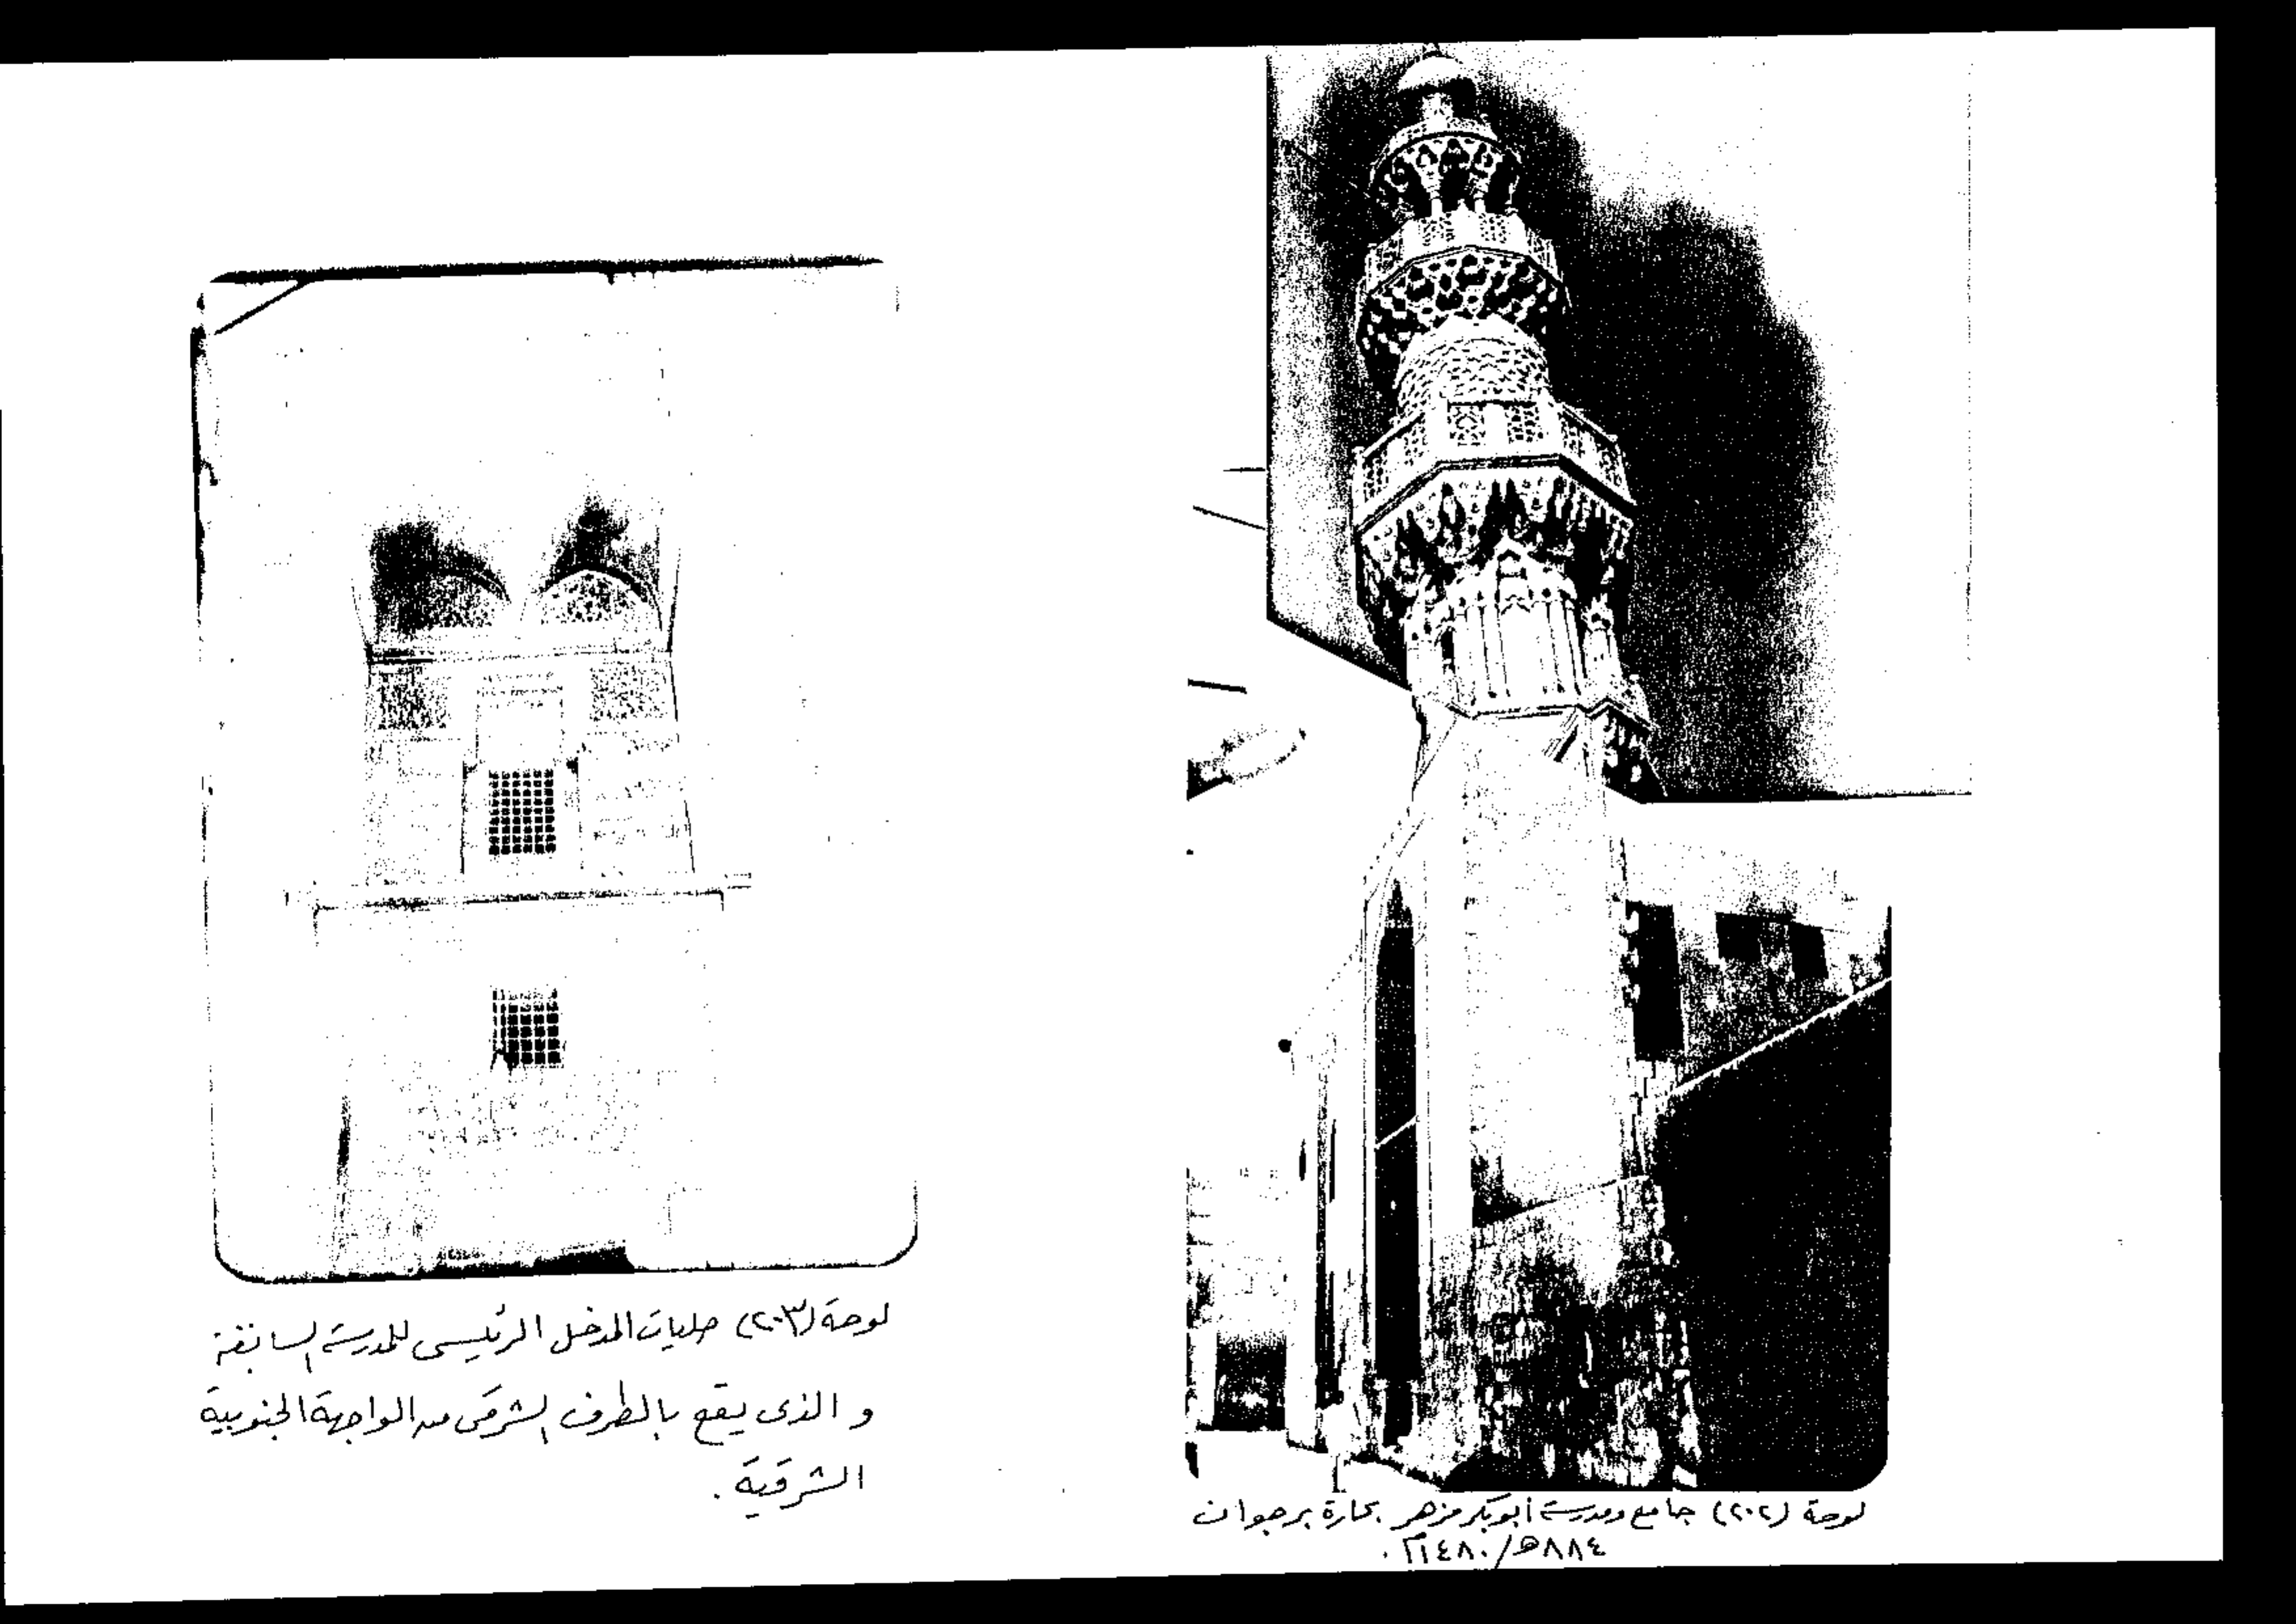 لوحة (٢٠٢) جامع ومدرسة أبو بكر مزهر بحارة برجوان
٨٨٤هـ/١٤٨٠م.
لوحة (٢٠٣) حليات المدخل الرئيسى للمدرسة السابقة
و الذى يقع بالطرف الشرقى من الواجهة الجنوبية
الشرقية.